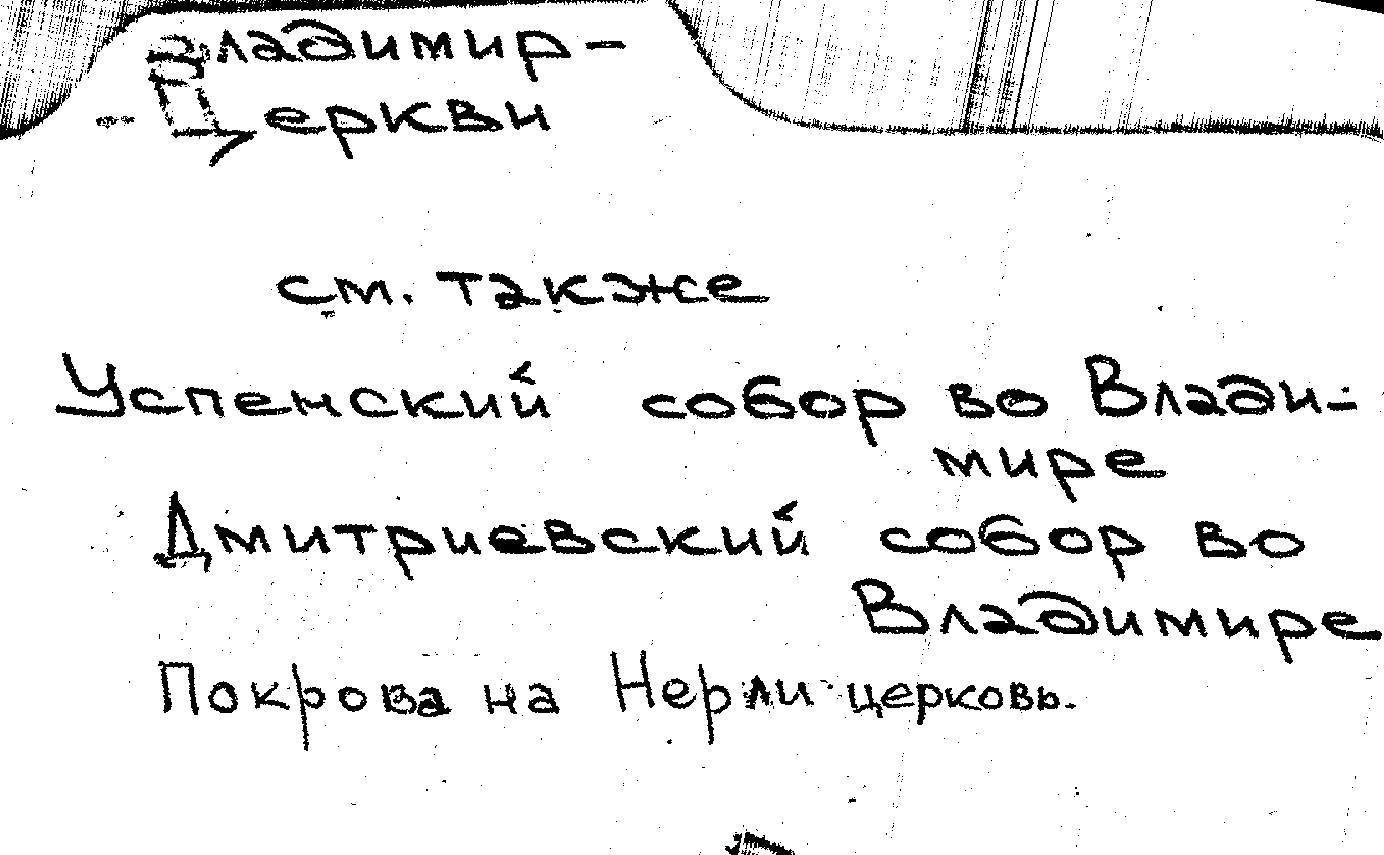 Владимир -
- Церкви
см. также
Успенский собор во Влади-
мире
Дмитриевский собор во
Владимире
Покрова на Нерли церковь.